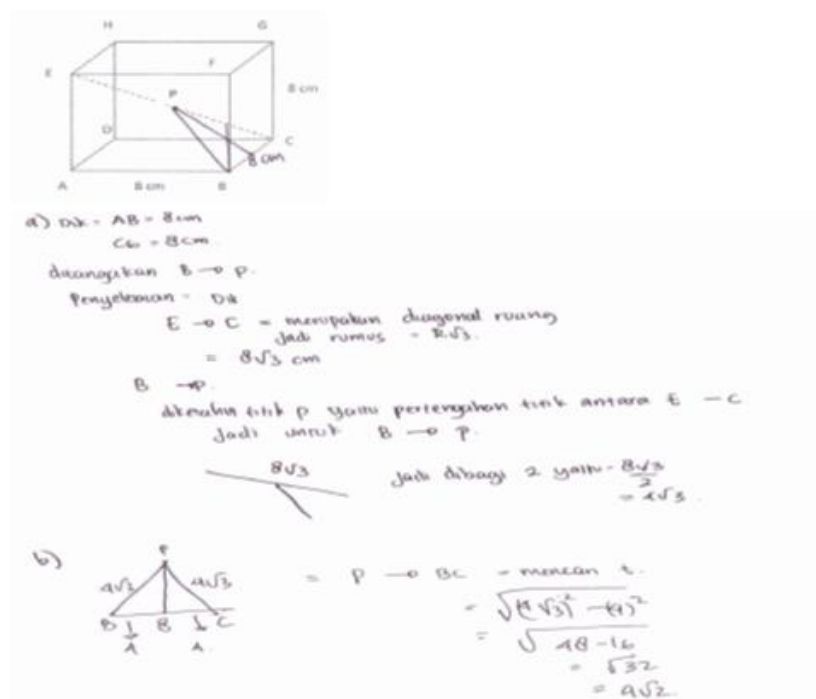 H G
E F
P
8 cm
D C
8 cm
A 8 cm B
a) Dik = AB = 8cm
CG = 8cm
ditanyakan B → P.
Penyelesaian = Dik
E → C = merupakan diagonal ruang
Jadi rumus = R√3.
= 8√3 cm
B → P.
diketahui titik P yaitu pertengahan titik antara E - C
Jadi untuk B → P.
8√3 Jadi dibagi 2 yaitu = 8√3/2
= 4√3.
b) P = P → BC = mencari t.
4√3 4√3 = √(4√3)² - (4)²
B B C = √48 - 16
4 4 = √32
= 4√2